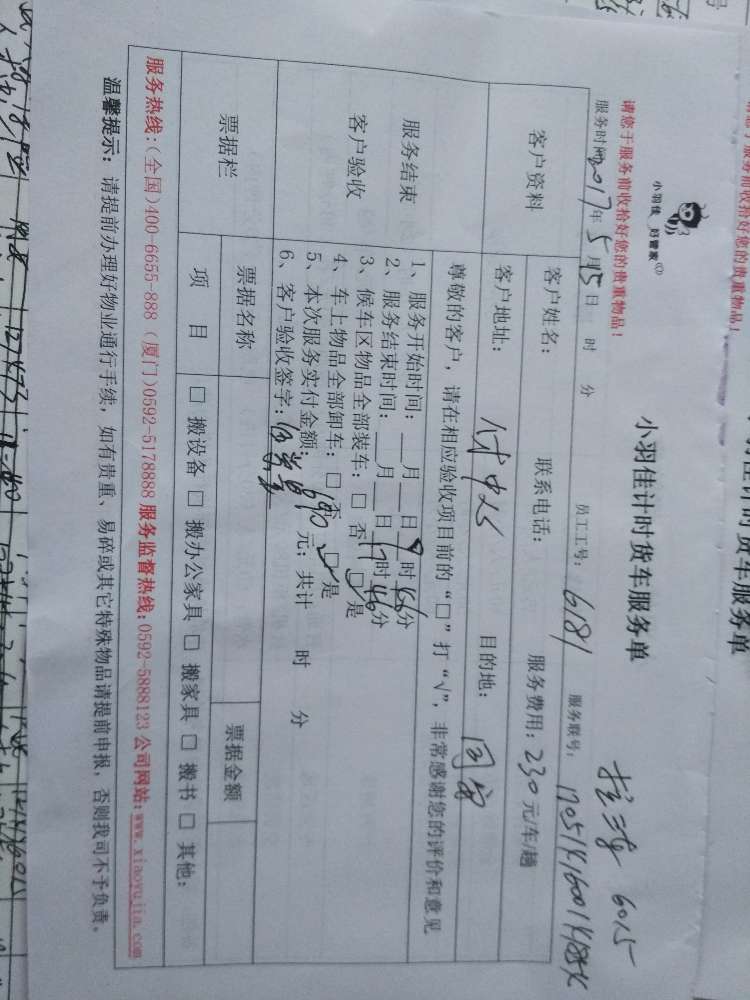 小羽佳 好管家
小羽佳计时货车服务单
请您于服务前收拾好您的贵重物品！
服务时间2017年5月15日 时 分 员工工号：6181 服务联号：
客户资料
客户姓名： 联系电话： 服务费用：230元/车/趟
客户地址： 目的地：同安
服务结束
客户验收
尊敬的客户，请在相应验收项目前的“□”打“√”，非常感谢您的评价和意见
1、服务开始时间：__月__日 时 分
2、服务结束时间：__月__日 时46分
3、候车区物品全部装车：□ 否 □ 是
4、车上物品全部卸车：□ 否 □ 是
5、本次服务实付金额：690元；共计 时 分
6、客户验收签字：
票据栏
票据名称 票据金额
项 目 □ 搬设备 □ 搬办公家具 □ 搬家具 □ 搬书 □ 其他：
服务热线：（全国）400-6655-888（厦门）0592-5178888 服务监督热线：0592-5888123 公司网站：www.xiaoyujia.com
温馨提示：请提前办理好物业通行手续，如有贵重、易碎或其它特殊物品请提前申报，否则我司不予负责。